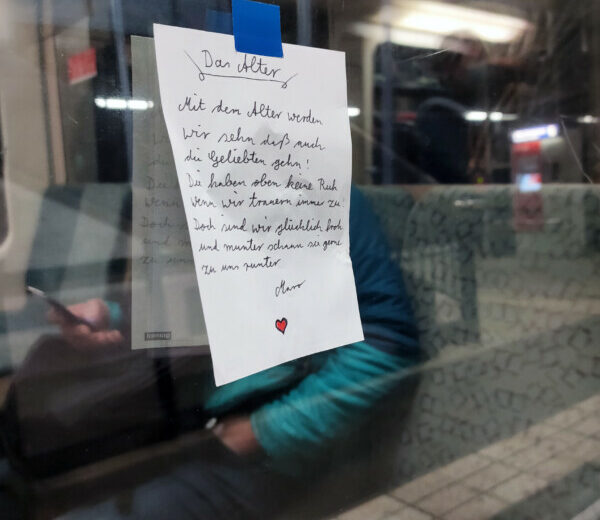 Das Alter
Mit dem Alter werden
wir sehn daß auch
die Geliebten gehn!
Die haben oben keine Ruh
wenn wir trauern immer zu!
Doch sind wir glücklich froh
und munter schaun sie gerne
zu uns runter